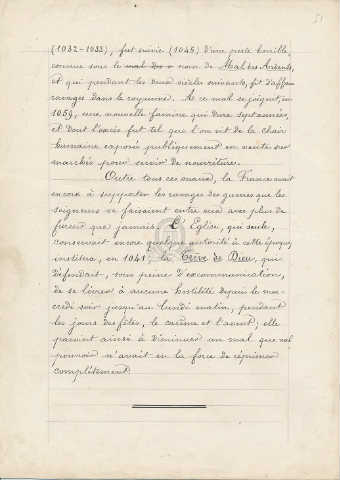 51
(1032-1033), fut suivie (1045) d'une peste horrible,
connue sous le mal des nom de Mal des Ardents,
et qui pendant les deux siècles suivants, fit d'affreux
ravages dans le royaume. À ce mal se joignit, en
1059, une nouvelle famine qui dura sept années,
et dont l'excès fut tel que l'on vit de la chair
humaine exposée publiquement en vente au
marché pour servir de nourriture.
Outre tous ces maux, la France avait
encore à supporter les ravages des guerres que les
seigneurs se faisaient entre eux avec plus de
fureur que jamais. L'Église, qui seule,
conservait encore quelque autorité à cette époque,
institua, en 1041, la Trève de Dieu, qui
défendait, sous peine d'excommunication,
de se livrer à aucune hostilité depuis le mer-
credi soir jusqu'au lundi matin, pendant
les jours des fêtes, le carême et l'avent; elle
parvint ainsi à diminuer un mal que nul
pouvoir n'avait eu la force de réprimer
complètement